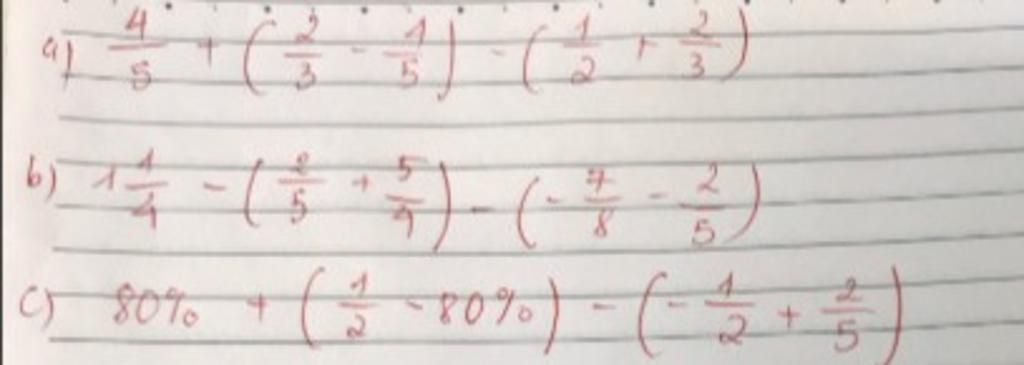 a) 4/5 + (2/3 - 1/5) - (1/2 + 2/3)
b) 1 1/4 - (2/5 + 5/4) - (-7/8 - 2/5)
c) 80% + (1/2 - 80%) - (-1/2 + 2/5)